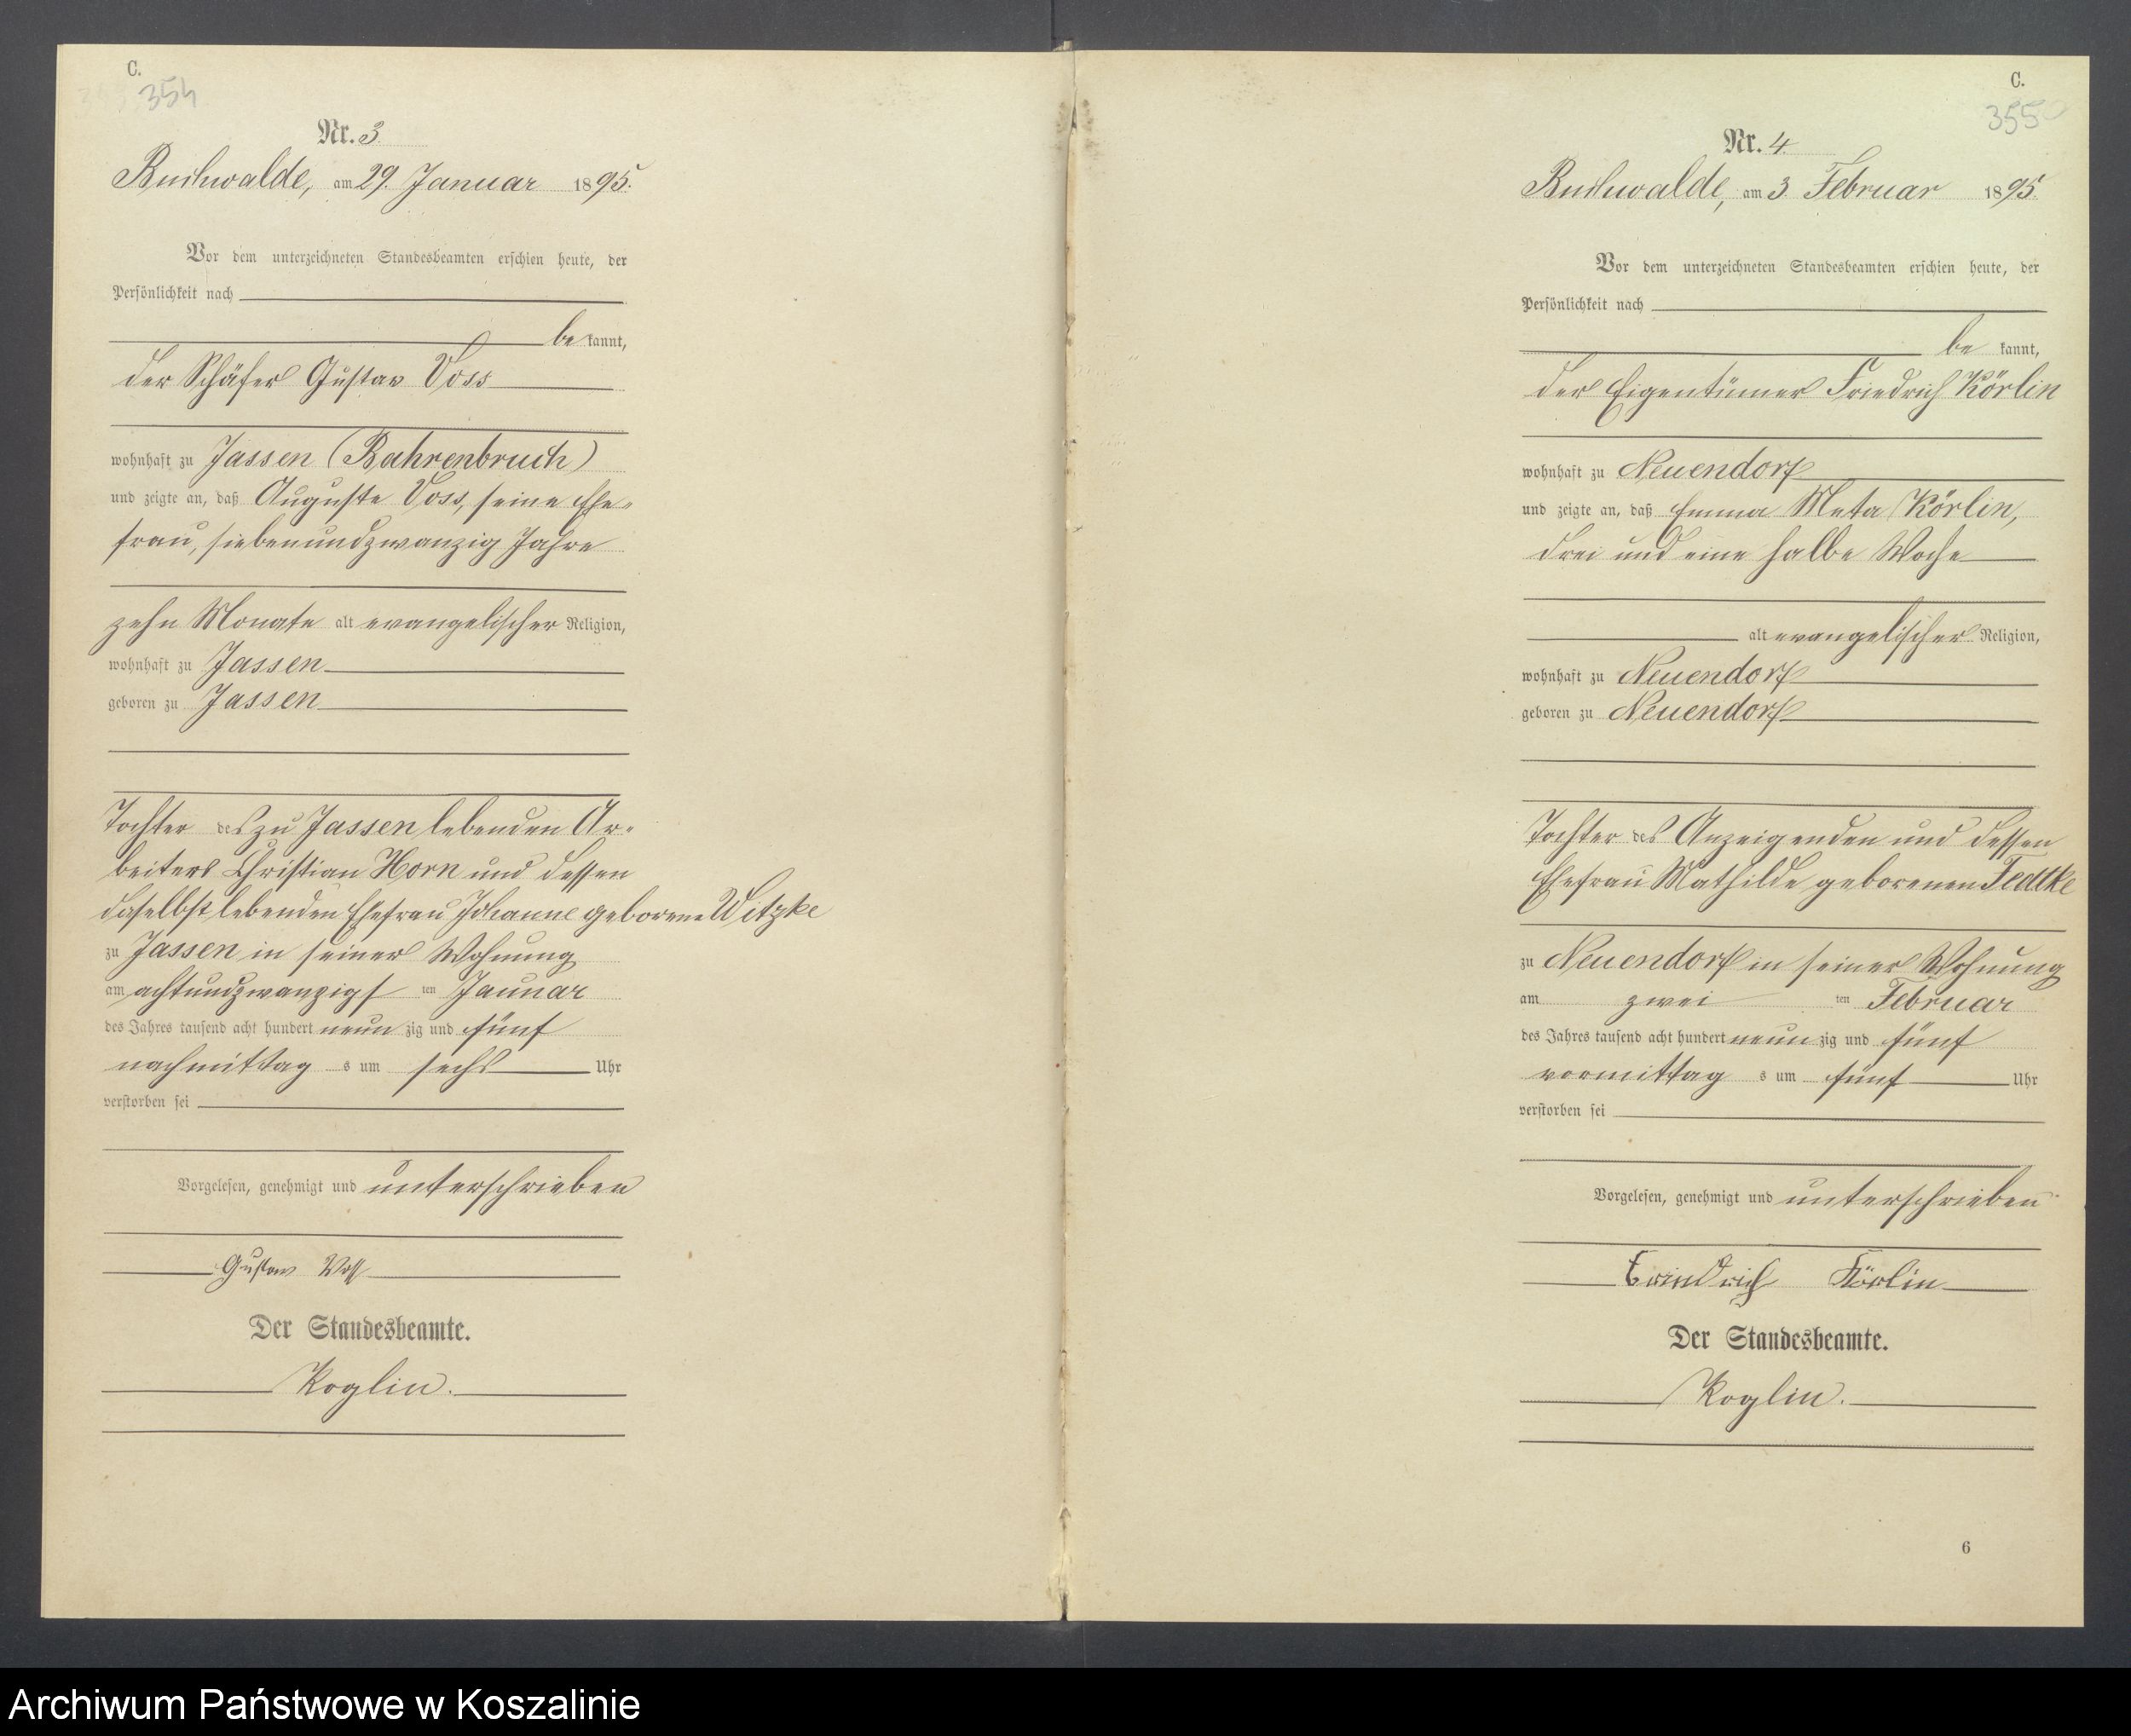 C.
354
Nr. 3.
Buchwalde, am 29. Januar 1895.
Vor dem unterzeichneten Standesbeamten erschien heute, der
Persönlichkeit nach
be kannt,
der Schäfer Gustav Voss
wohnhaft zu Jassen (Bahrenbruch)
und zeigte an, daß Auguste Voss, seine Ehe-
frau, siebenundzwanzig Jahre
zehn Monate alt evangelischer Religion,
wohnhaft zu Jassen
geboren zu Jassen
Tochter des zu Jassen lebenden Ar-
beiters Christian Horn und dessen
daselbst lebenden Ehefrau Johanne geborene Witzke
zu Jassen in seiner Wohnung
am achtundzwanzigs ten Januar
des Jahres tausend acht hundert neun zig und fünf
nachmittag s um sechs Uhr
verstorben sei
Vorgelesen, genehmigt und unterschrieben
Gustav Voss
Der Standesbeamte.
Koglin.
C.
355
Nr. 4.
Buchwalde, am 3. Februar 1895.
Vor dem unterzeichneten Standesbeamten erschien heute, der
Persönlichkeit nach
be kannt,
der Eigentümer Friedrich Körlin
wohnhaft zu Neuendorf
und zeigte an, daß Emma Meta Körlin,
drei und eine halbe Woche
alt evangelischer Religion,
wohnhaft zu Neuendorf
geboren zu Neuendorf
Tochter des Anzeigenden und dessen
Ehefrau Mathilde geborenen Fedtke
zu Neuendorf in seiner Wohnung
am zwei ten Februar
des Jahres tausend acht hundert neun zig und fünf
vormittag s um fünf Uhr
verstorben sei
Vorgelesen, genehmigt und unterschrieben
Friedrich Körlin
Der Standesbeamte.
Koglin.
6
Archiwum Państwowe w Koszalinie